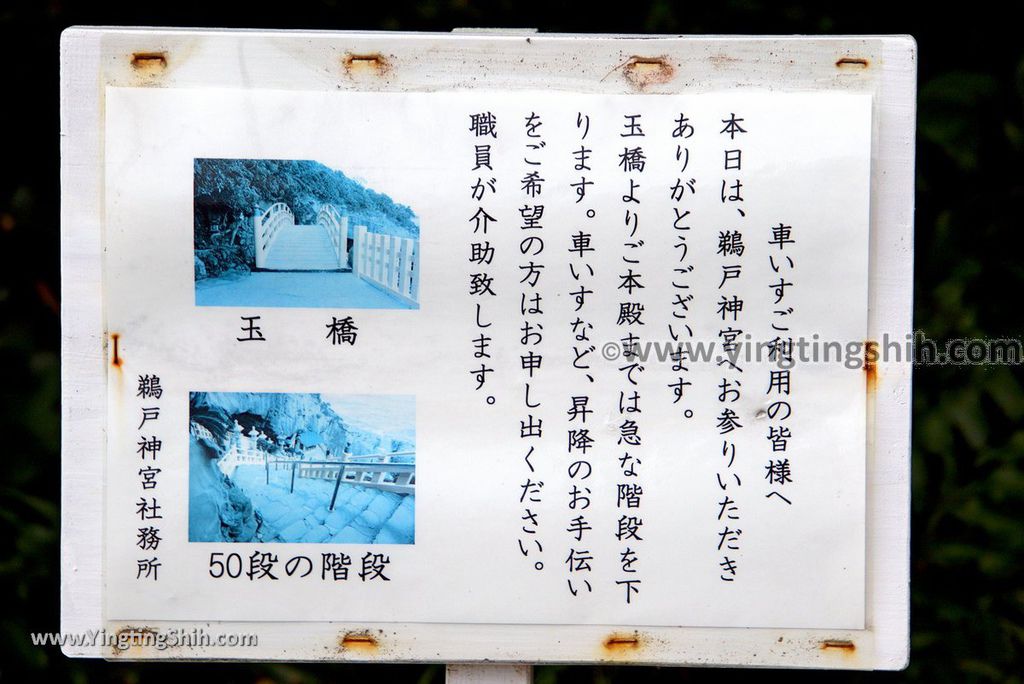 車いすご利用の皆様へ
本日は、鵜戸神宮へお参りいただき
ありがとうございます。
玉橋よりご本殿までは急な階段を下
ります。車いすなど、昇降のお手伝い
をご希望の方はお申し出ください。
職員が介助致します。
玉橋
50段の階段
鵜戸神宮社務所
©www.yingtingshih.com
www.YingtingShih.com